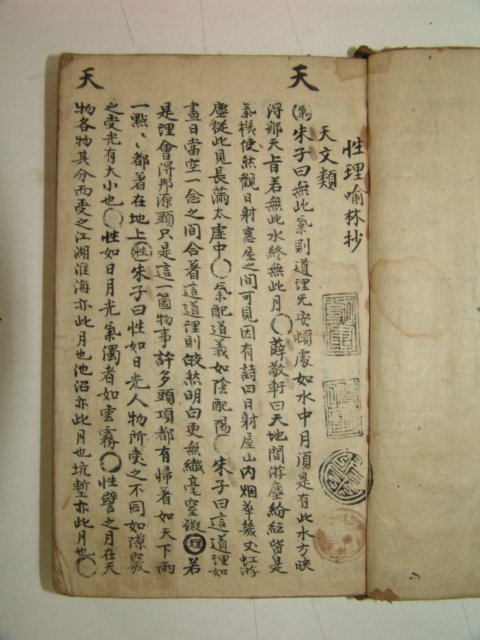 天
天
性理喻林抄
天文類
氣 朱子曰無此氣則道理无安頓處如水中月須是有此水方映
得那天月若無此水終無此月○薛敬軒曰天地間游塵紛紜皆是
氣機使然觀日射窓屋之間可見因有詩曰日射屋山内烟華幾丈虹游
塵從此見長滿太虛中○氣配道義如陰配陽○朱子曰這道理如
晝日當空一念之間合着這道理則皎然明白更無纖毫窒礙 理 若
是理會得那源頭只是這一箇物事許多頭項都有歸着如天下雨
一點〻都着在地上 性 朱子曰性如日光人物所受之不同如隙竅
之受光有大小也○性如日月光氣濁者如雲霧○性譬之月在天
物各物其分而受之江湖淮海亦此月也池沼亦此月也坑塹亦此月也○